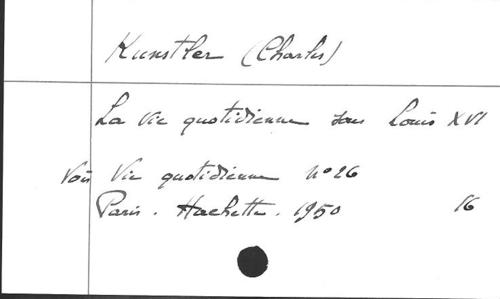 Kunstler (Charles)
La vie quotidienne sous Louis XVI
Voir Vie quotidienne n° 26
Paris. Hachette. 1950 16